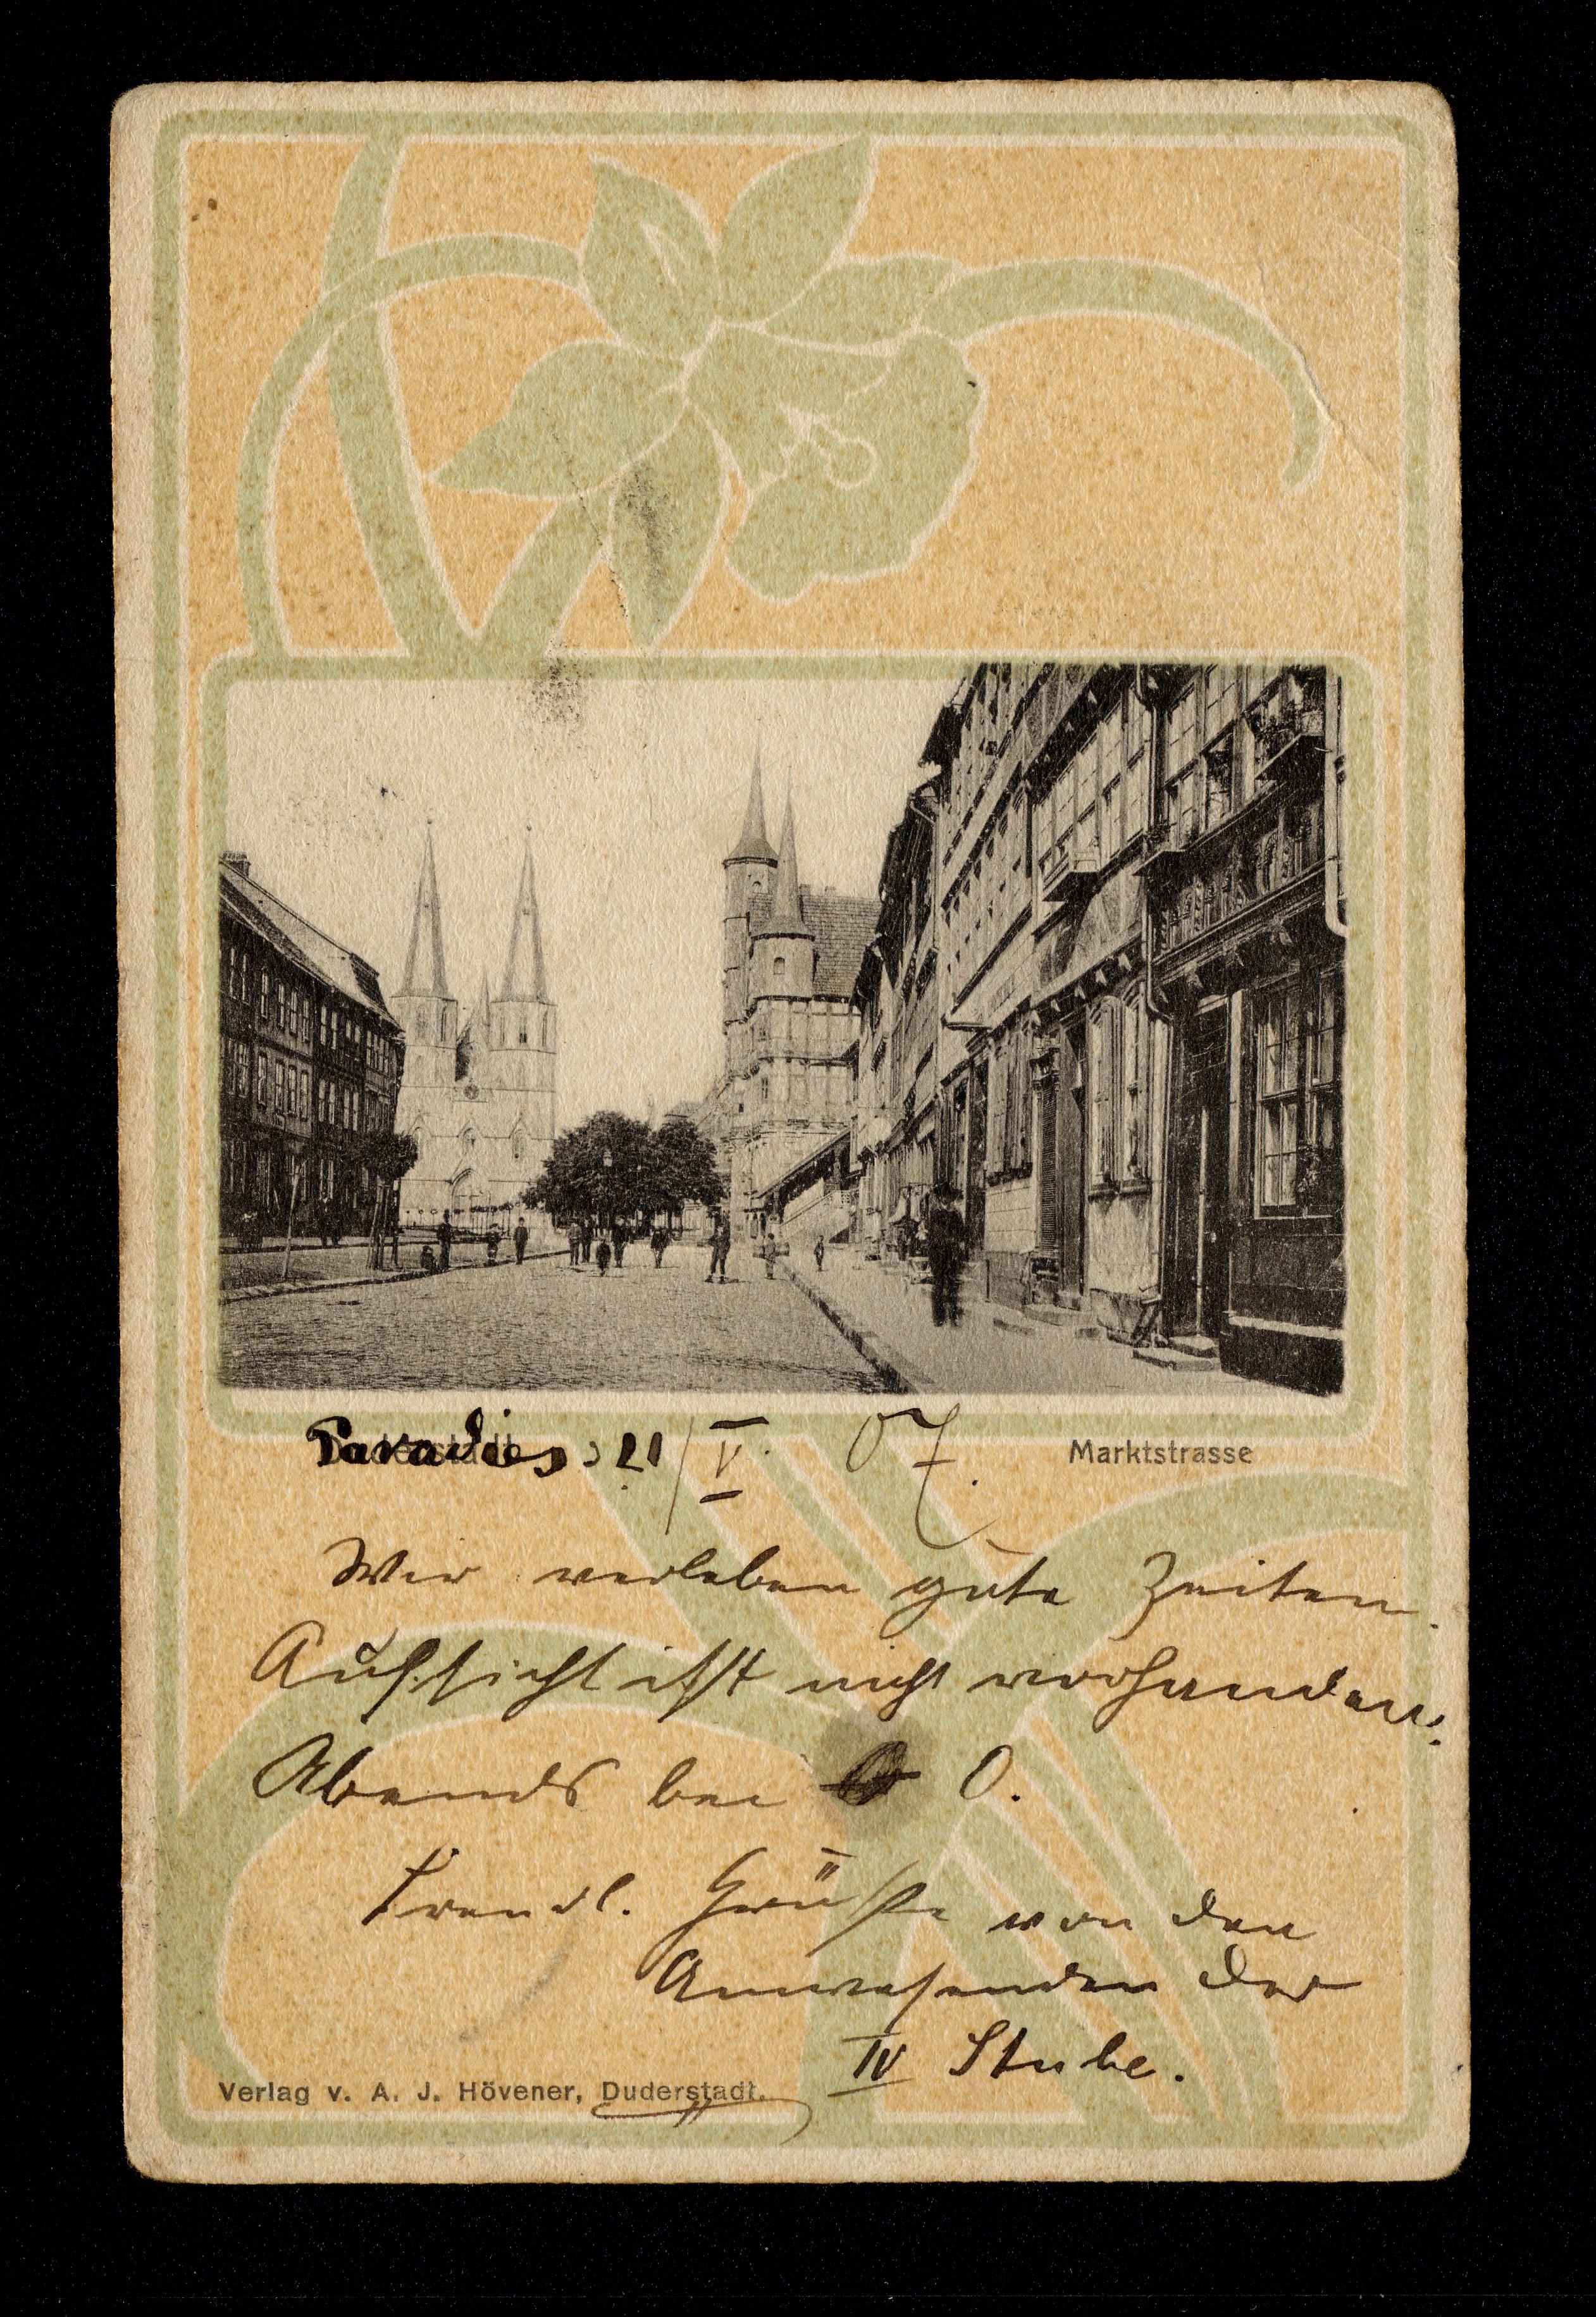 Paradies, 21/V. 07. Marktstrasse
Wir verleben gute Zeiten.
Aufsicht ist nicht vorhanden.
Abends bei O.
Freudl. Grüße von den
Anwesenden der
IV Stube.
Verlag v. A. J. Hövener, Duderstadt.